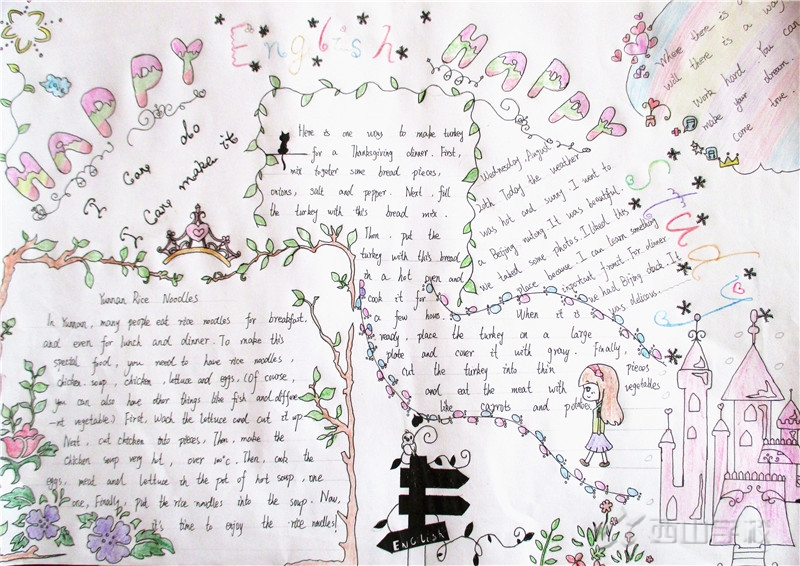 HAPPY English HAPPY
Study
I Can do
I Can make it
Where there is a
will there is a way
Work hard. You can
make your dream
come true.
Here is one way to make turkey
for a Thanksgiving dinner. First,
mix togeter some bread pieces,
onions, salt and pepper. Next, fill
the turkey with this bread mix.
Then, put the
turkey with this bread
in a hot oven and
cook it for
a few hours. When it is
ready, place the turkey on a large
plate and cover it with gravy. Finally,
cut the turkey into thin pieces
and eat the meat with vegetables
like carrots and potatoes
Wednesday, August
20th Today the weather
was hot and sunny. I went to
a Beijing hutong It was beautiful.
we taked some photos. I liked this
place because I can learn something
inportant. for dinner
we had Bijing duck. It
was delicious.
Yunnan Rice Noodles
In Yunnan, many people eat rice noodles for breakfast,
and even for lunch and dinner. To make this
special food, you need to have rice noodles,
chicken soup, chicken, lettuce and eggs, (Of course,
you can also have other things like fish and differe
-nt vegetable.) First, wash the lettuce and cut it up
Next, cut chicken into pieces, Then, make the
chicken soup very hot, over 100°C. Then, cook the
eggs, meat and lettuce in the pot of hot soup, one
one, Finally, put the rice noodles into the soup. Now,
it's time to enjoy the rice noodles!
ENGLISH
西山学校